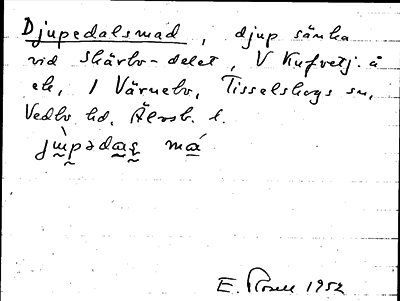 Djupedalsmad, djup sänka
vid Skärbo-delet, V Kufvetj. å
ek, 1 Värnebo, Tisselskogs sn,
Vedbo hd. Älvsb. l.
jùpədas̱ má
E. Rosell 1952